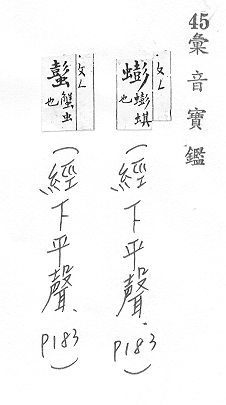 45彙音寶鑑
ㄆㄥ
蟛蟛蜞也
(經下平聲.P183)
ㄆㄥ
蟚蟹虫也
(經下平聲、P183)